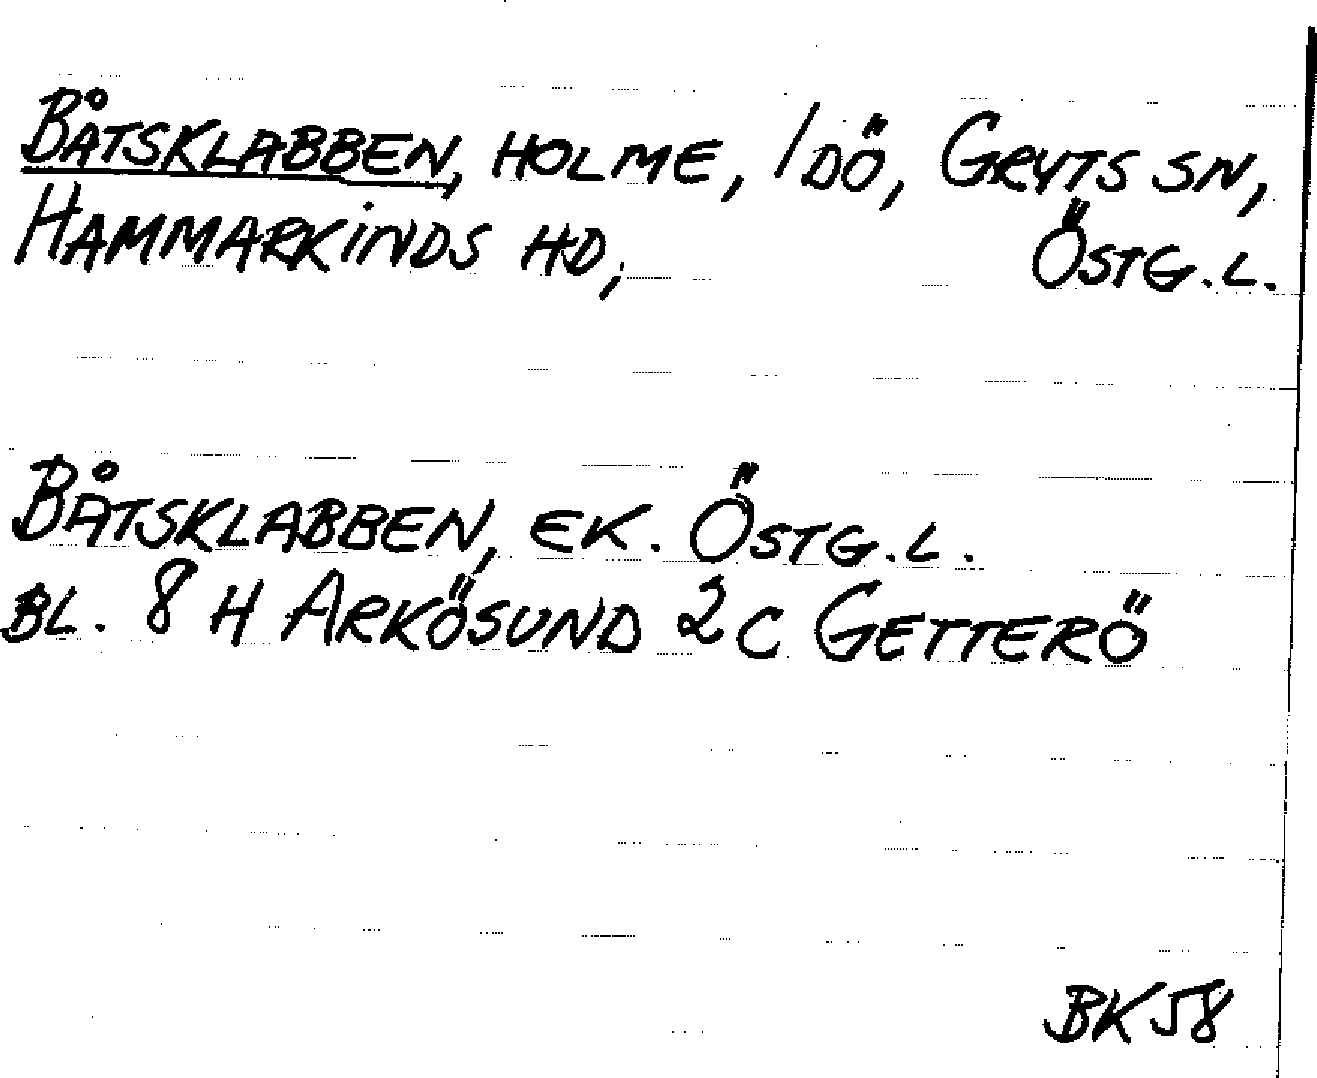 BÅTSKLABBEN, HOLME, IDÖ, GRYTS SN,
HAMMARKINDS HD, ÖSTG.L.
BÅTSKLABBEN, EK. ÖSTG.L.
BL. 8 H ARKÖSUND 2 C GETTERÖ
BK58